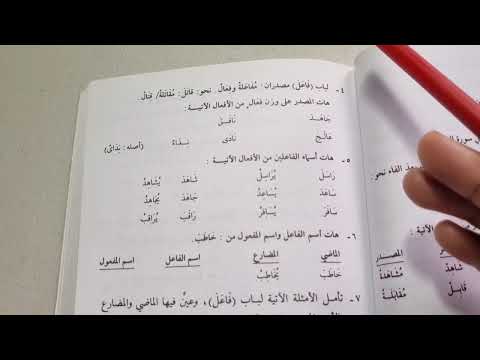 ٤ - لباب (فَاعَلَ) مصدران: مُفَاعَلَةٌ وفِعَالٌ. نحو: قَاتَلَ: مُقَاتَلَةٌ / قِتَالٌ.
هات المصدر على وزن فِعَالٍ من الأفعال الآتية:
جَاهَدَ نَافَقَ
عَالَجَ نَادَى نِدَاءٌ (أصله: نِدَايٌ)
٥ - هات أسماء الفاعلين من الأفعال الآتية:
رَاسَلَ يُرَاسِلُ شَاهَدَ يُشَاهِدُ
سَاعَدَ يُسَاعِدُ جَاهَدَ يُجَاهِدُ
سَافَرَ يُسَافِرُ رَاقَبَ يُرَاقِبُ
٦ - هات اسم الفاعل واسم المفعول من: خَاطَبَ.
الماضي المضارع اسم الفاعل اسم المفعول
خَاطَبَ يُخَاطِبُ
٧ - تأمل الأمثلة الآتية لباب (فَاعَلَ)، وعين فيها الماضي والمضارع
سورة
الفاء نحو:
الآتية:
المصدر
شَاهَدَ مُشَاهَدَةٌ
قَابَلَ مُقَابَلَةٌ